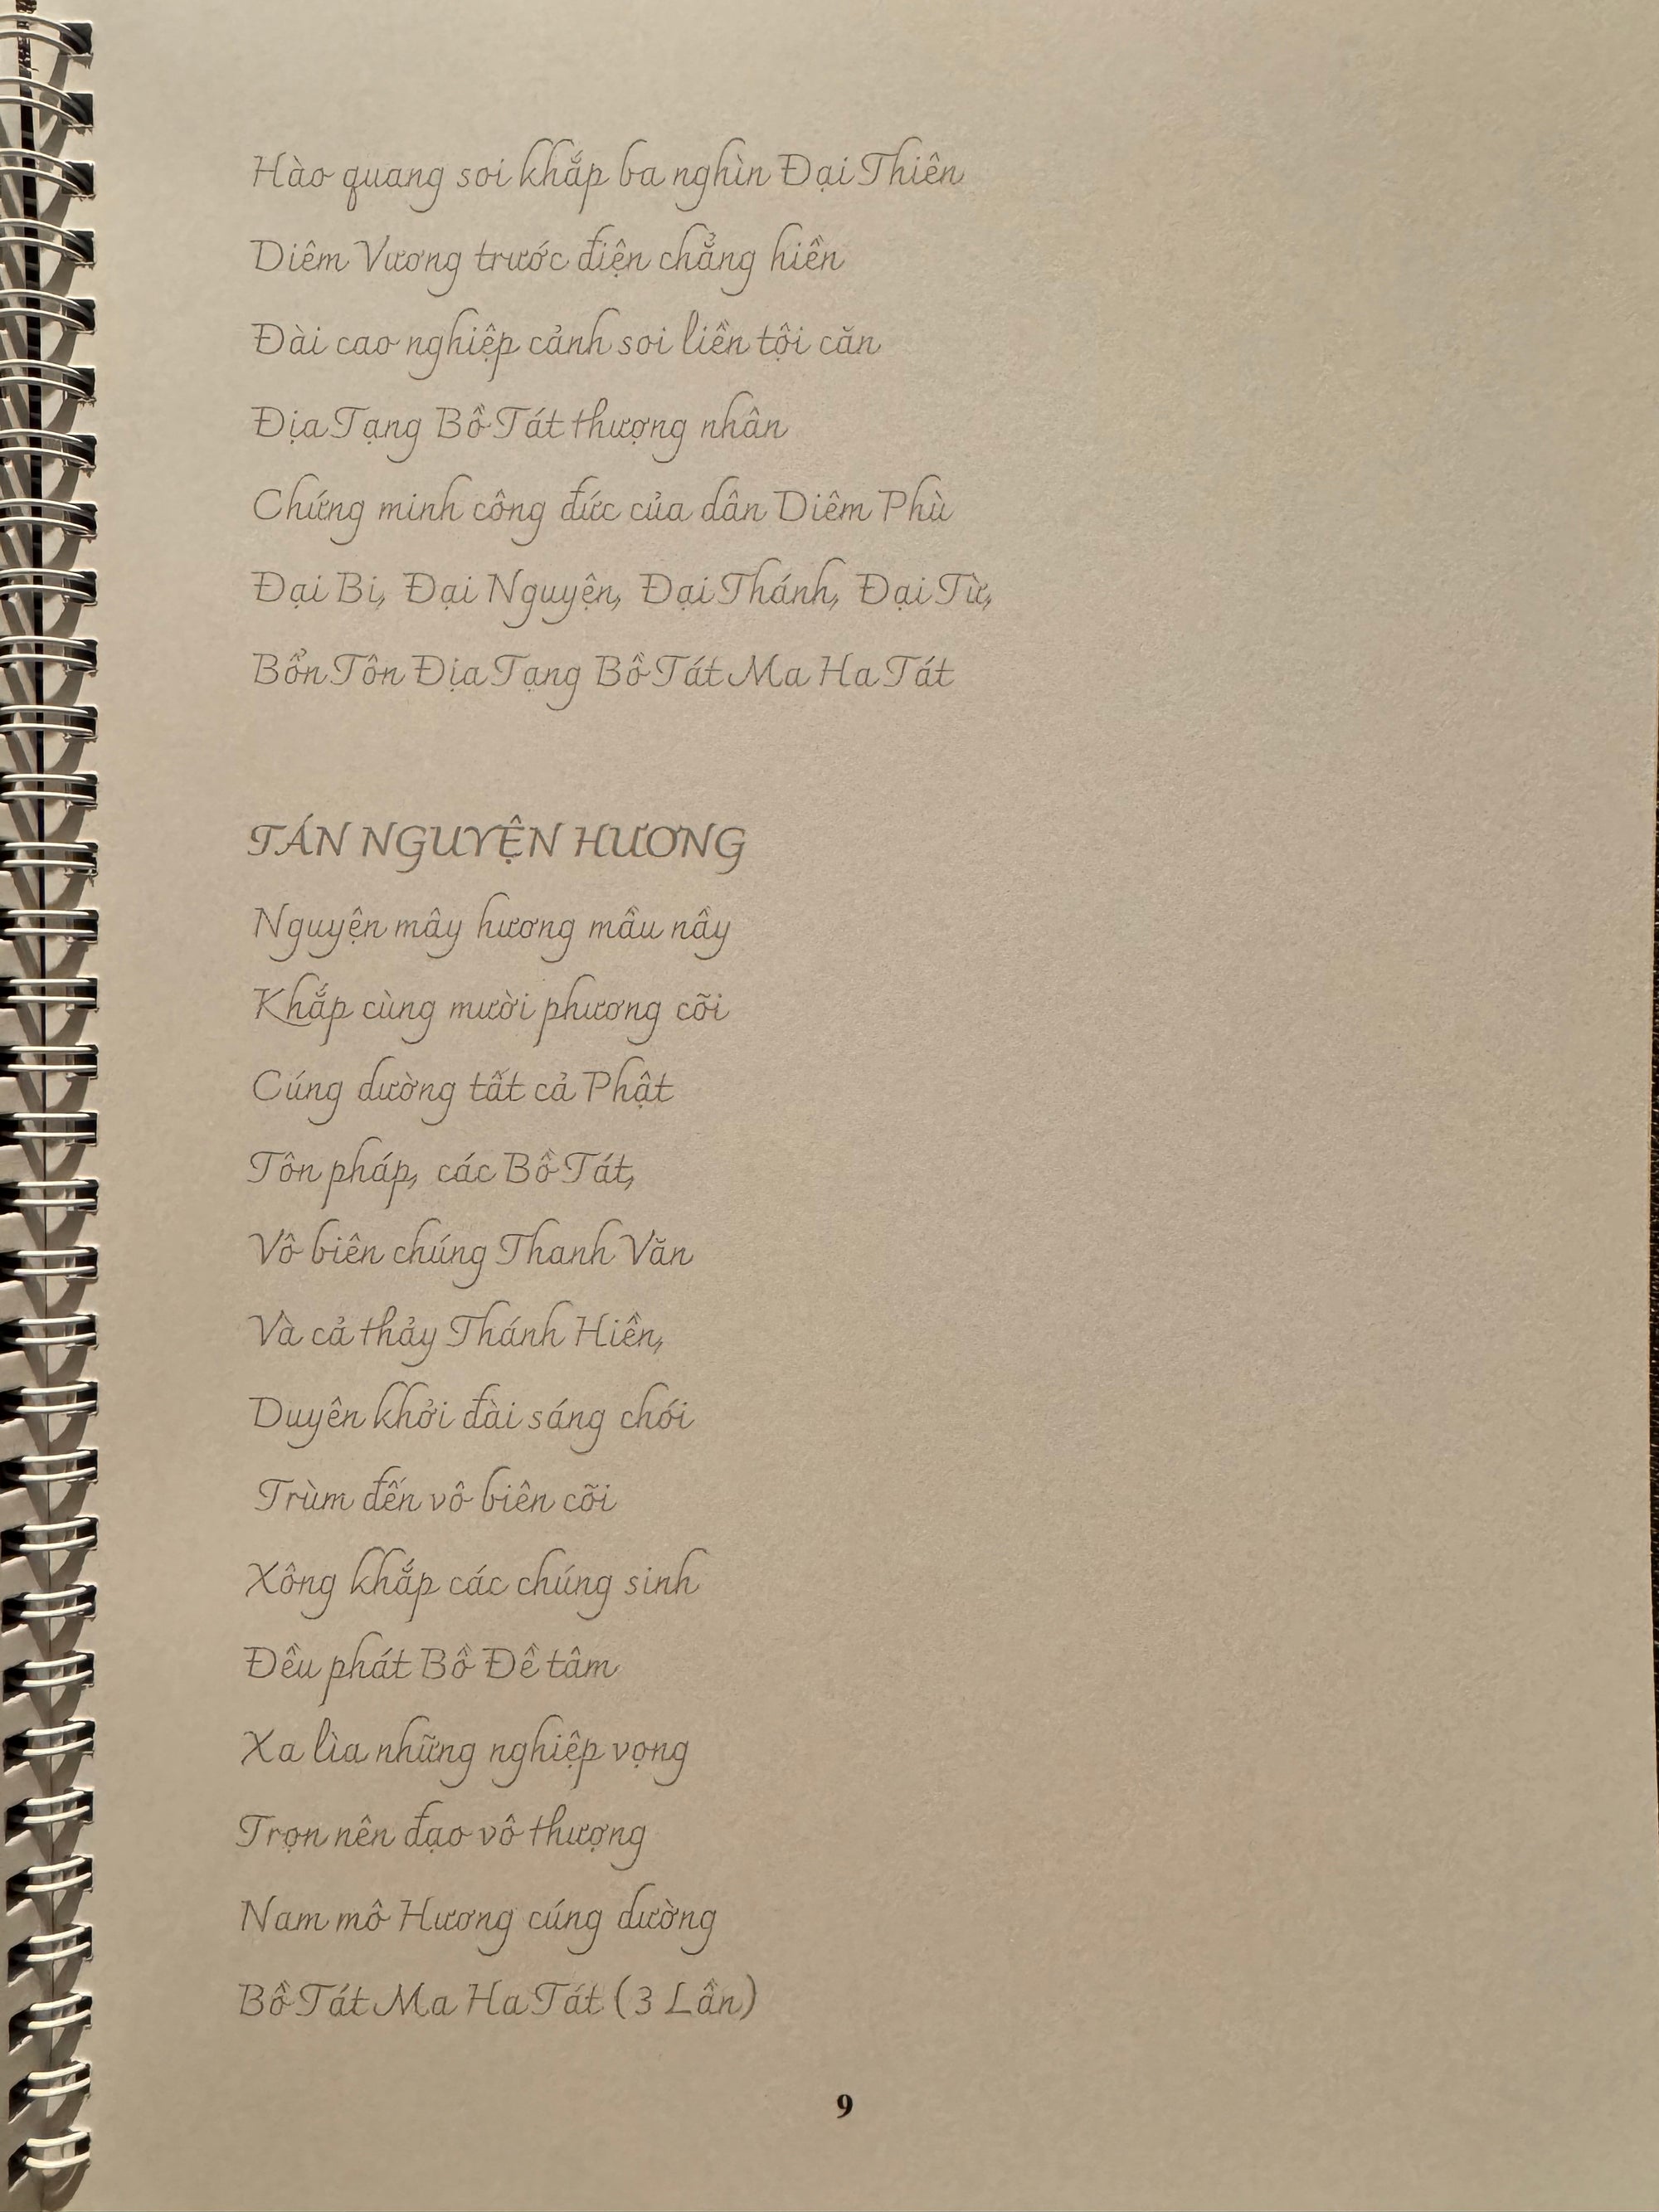 Hào quang soi khắp ba nghìn Đại Thiên
Diêm Vương trước điện chẳng hiền
Đài cao nghiệp cảnh soi liền tội căn
Địa Tạng Bồ Tát thượng nhân
Chứng minh công đức của dân Diêm Phù
Đại Bi, Đại Nguyện, Đại Thánh, Đại Từ,
Bổn Tôn Địa Tạng Bồ Tát Ma Ha Tát
TÁN NGUYỆN HƯƠNG
Nguyện mây hương mầu nầy
Khắp cùng mười phương cõi
Cúng dường tất cả Phật
Tôn pháp, các Bồ Tát,
Vô biên chúng Thanh Văn
Và cả thảy Thánh Hiền,
Duyên khởi đài sáng chói
Trùm đến vô biên cõi
Xông khắp các chúng sinh
Đều phát Bồ Đề tâm
Xa lìa những nghiệp vọng
Trọn nên đạo vô thượng
Nam mô Hương cúng dường
Bồ Tát Ma Ha Tát (3 Lần)
9